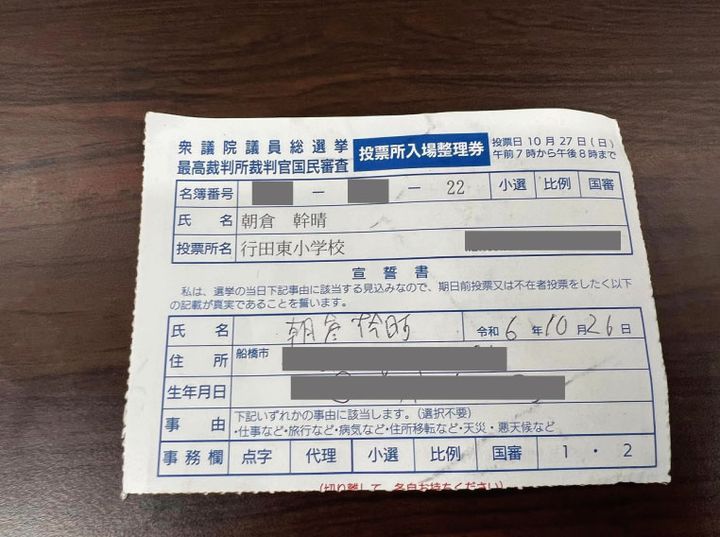 衆議院議員総選挙
最高裁判所裁判官国民審査
投票所入場整理券
投票日10月27日(日)
午前7時から午後8時まで
名簿番号 － － 22 小選 比例 国審
氏名 朝倉 幹晴
投票所名 行田東小学校
宣誓書
私は、選挙の当日下記事由に該当する見込みなので、期日前投票又は不在者投票をしたく以下
の記載が真実であることを誓います。
氏名 朝倉幹晴 令和6年10月26日
住所 船橋市
生年月日
事由 下記いずれかの事由に該当します。(選択不要)
・仕事など・旅行など・病気など・住所移転など・天災・悪天候など
事務欄 点字 代理 小選 比例 国審 1・2
(切り離して、各自お持ちください)